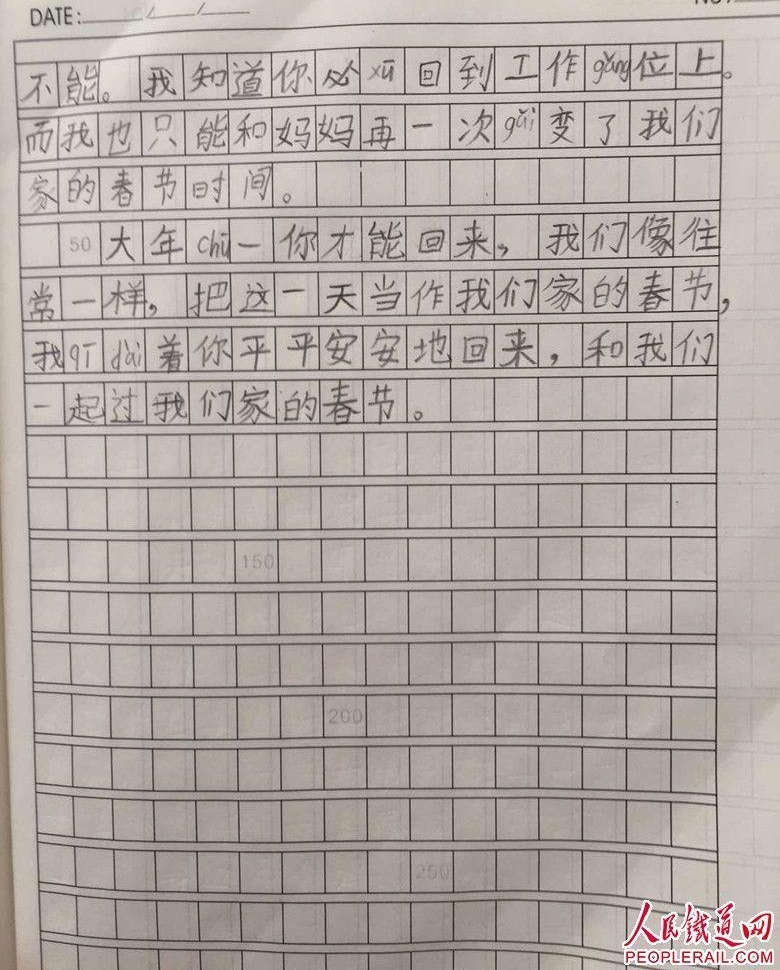 DATE:
不能。我知道你必xū回到工作gǎng位上。
而我也只能和妈妈再一次gǎi变了我们
家的春节时间。
50
大年chū一你才能回来，我们像往
常一样，把这一天当作我们家的春节，
我qī dài着你平平安安地回来，和我们
一起过我们家的春节。
150
200
250
人民铁道网
PEOPLERAIL.COM